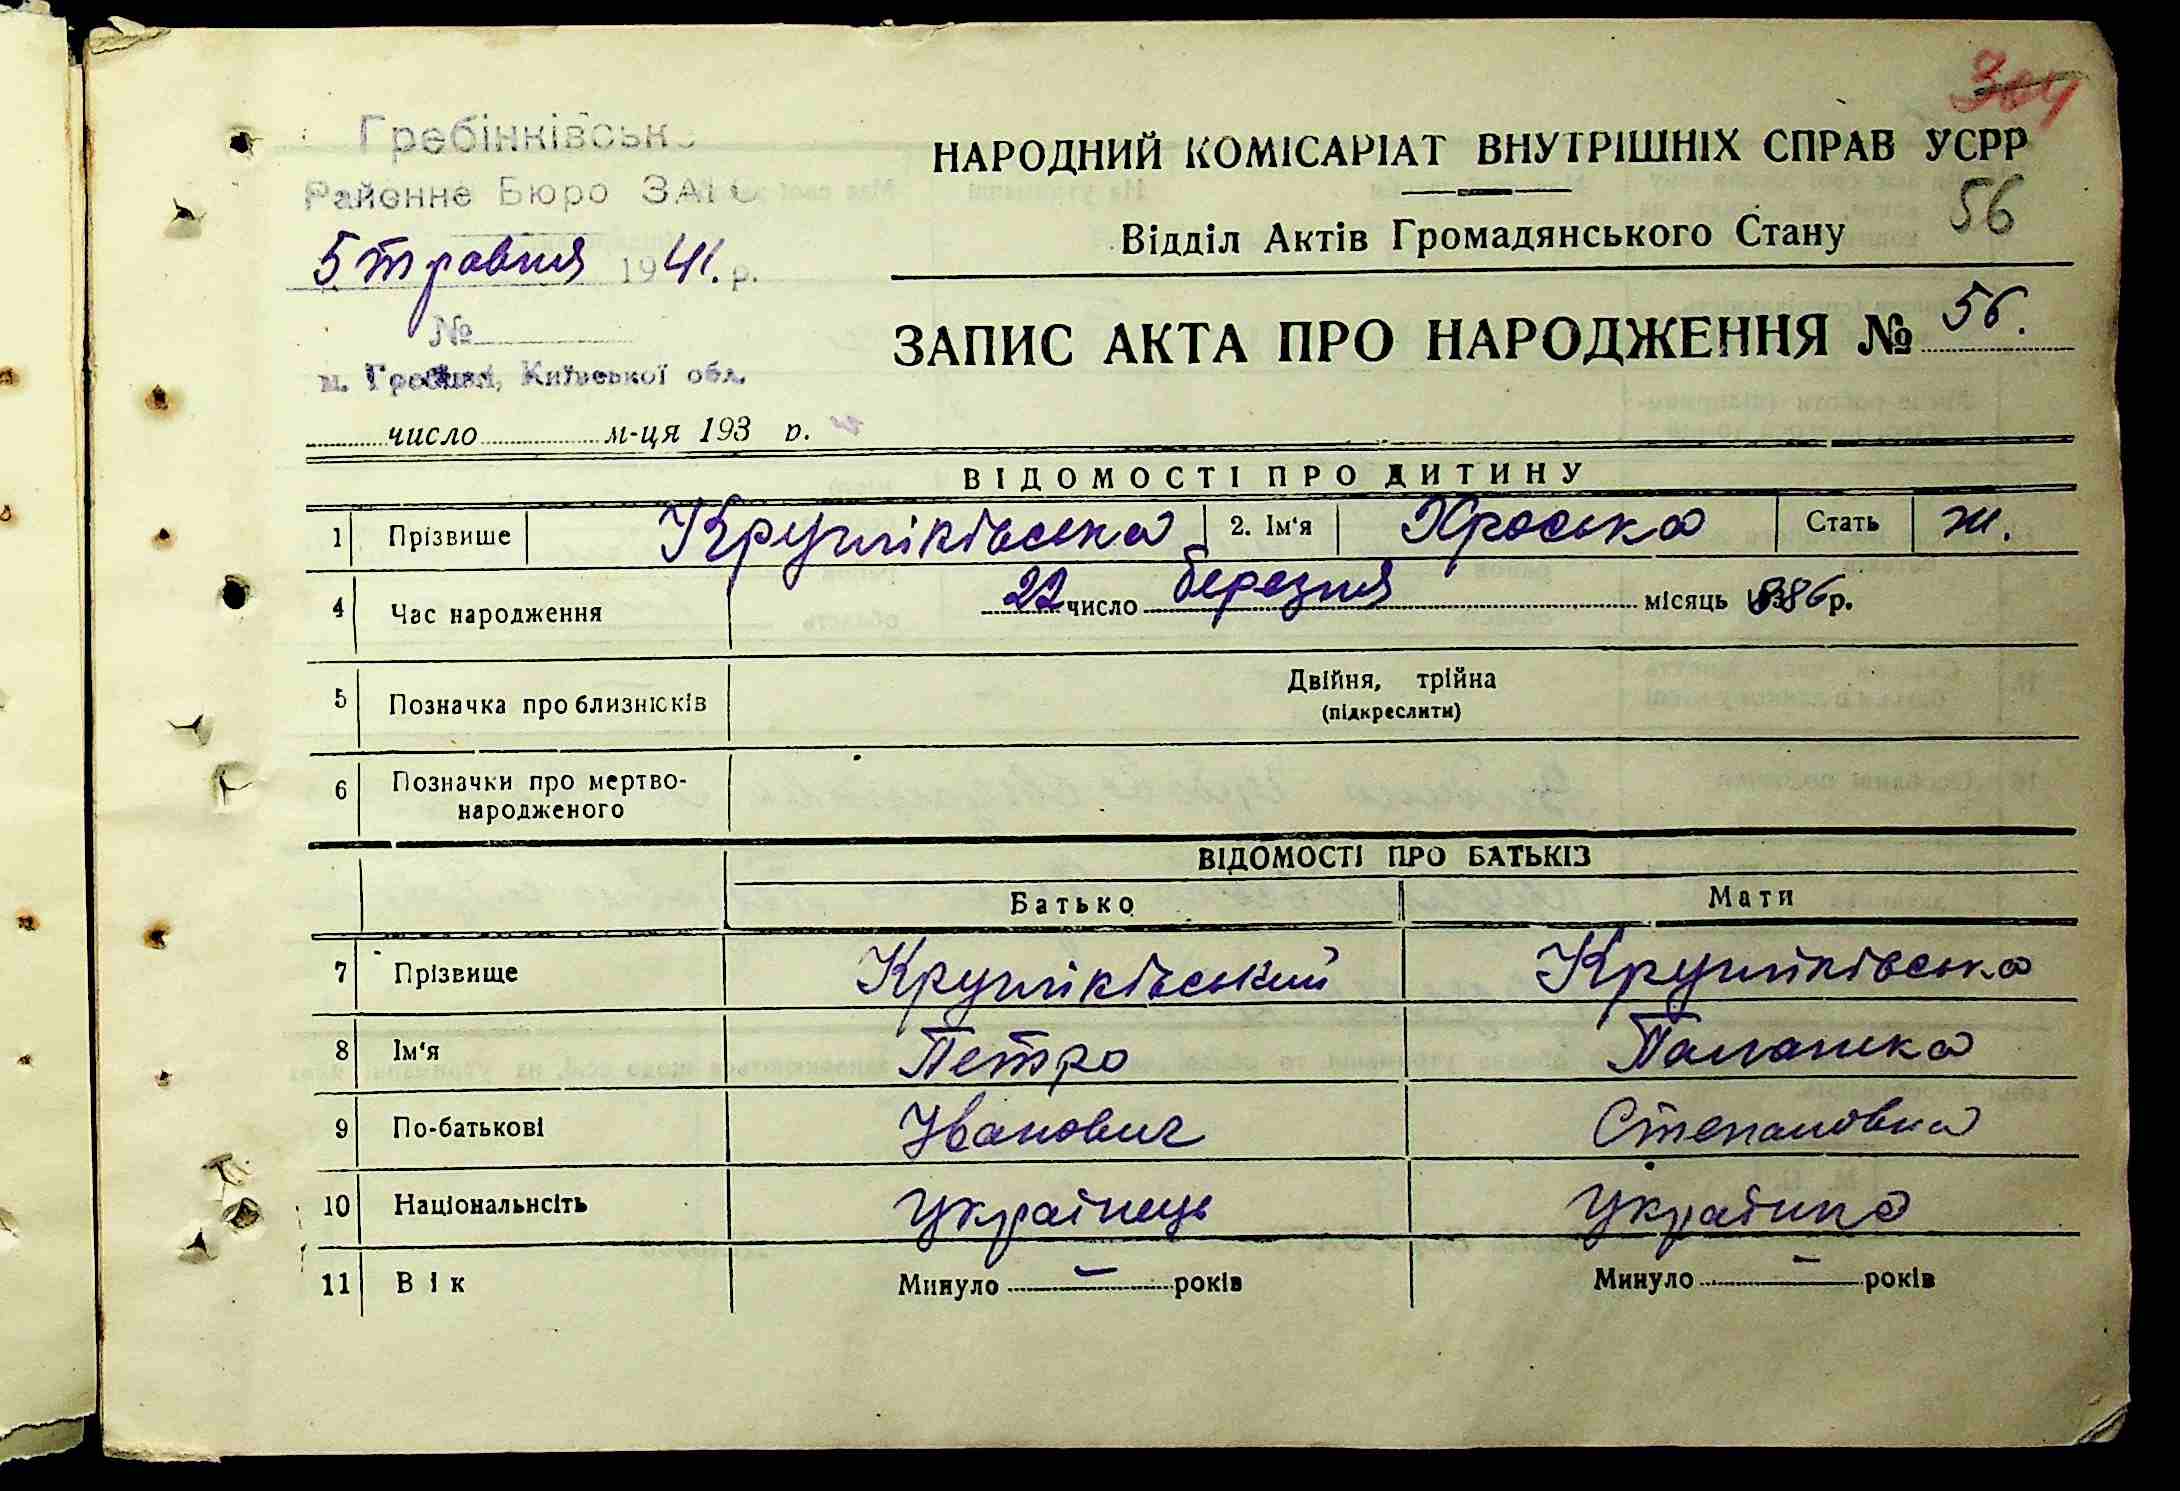 304
Гребінківськ
Районне Бюро ЗАГС
5 травня 1941. р.
№
м. Гребінки, Київської обл.
число м-ця 193 р.
НАРОДНИЙ КОМІСАРІАТ ВНУТРІШНІХ СПРАВ УСРР
56
Відділ Актів Громадянського Стану
ЗАПИС АКТА ПРО НАРОДЖЕННЯ № 56.
ВІДОМОСТІ ПРО ДИТИНУ
1 Прізвище Круликівська 2. Ім'я Хроська Стать ж.
4 Час народження 22 число березня місяць 1886 р.
5 Позначка про близнюків Двійня, трійна
(підкреслити)
6 Позначки про мертво-
народженого
ВІДОМОСТІ ПРО БАТЬКІВ
Батько Мати
7 Прізвище Круликівський Круликівська
8 Ім'я Петро Палашка
9 По-батькові Іванович Степановна
10 Національнсіть Українець Українка
11 Вік Минуло — років Минуло — років